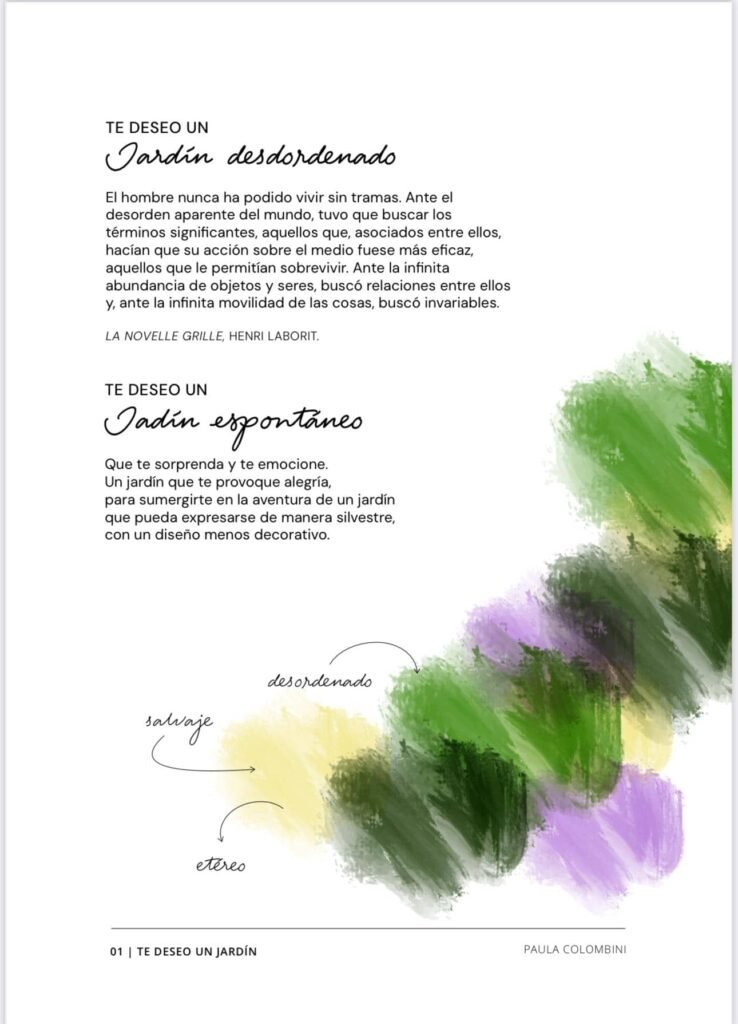 TE DESEO UN
Jardín desdordenado
El hombre nunca ha podido vivir sin tramas. Ante el
desorden aparente del mundo, tuvo que buscar los
términos significantes, aquellos que, asociados entre ellos,
hacían que su acción sobre el medio fuese más eficaz,
aquellos que le permitían sobrevivir. Ante la infinita
abundancia de objetos y seres, buscó relaciones entre ellos
y, ante la infinita movilidad de las cosas, buscó invariables.
LA NOVELLE GRILLE, HENRI LABORIT.
TE DESEO UN
Jadín espontáneo
Que te sorprenda y te emocione.
Un jardín que te provoque alegría,
para sumergirte en la aventura de un jardín
que pueda expresarse de manera silvestre,
con un diseño menos decorativo.
desordenado
salvaje
etéreo
01 | TE DESEO UN JARDÍN
PAULA COLOMBINI